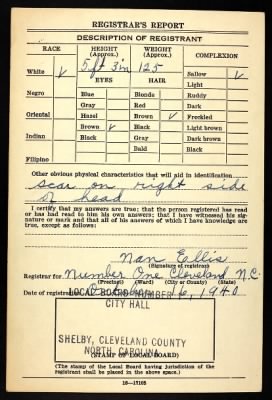 REGISTRAR'S REPORT
DESCRIPTION OF REGISTRANT
RACE HEIGHT (Approx.) WEIGHT (Approx.) COMPLEXION
White ✓ 5 ft 3 in 125 Sallow ✓
EYES HAIR Light
Negro Blue Blonde Ruddy
Gray Red Dark
Oriental Hazel Brown ✓ Freckled
Brown ✓ Black Light brown
Indian Black Gray Dark brown
Bald Black
Filipino
Other obvious physical characteristics that will aid in identification
scar on right side
of head
I certify that my answers are true; that the person registered has read
or has had read to him his own answers; that I have witnessed his sig-
nature or mark and that all of his answers of which I have knowledge are
true, except as follows:
Nan Eallis
(Signature of registrar)
Registrar for Number One Cleveland N.C.
(Precinct) (Ward) (City or County) (State)
Date of registration October 16, 1940
LOCAL BOARD NUMBER 1
CITY HALL
SHELBY, CLEVELAND COUNTY
NORTH CAROLINA
(STAMP OF LOCAL BOARD)
(The stamp of the Local Board having jurisdiction of the
registrant shall be placed in the above space.)
16—17105